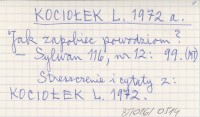 KOCIOŁEK L. 1972 a.
Jak zapobiec powodziom?
— Sylwan 116, nr 12: 99. (AD)
Streszczenie i cytaty z:
KOCIOŁEK L. 1972.